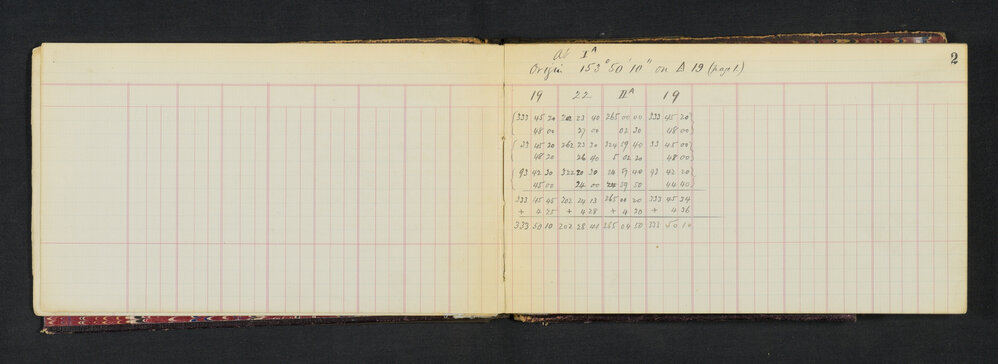 At I^A
2
Origin 153° 50' 10" on Δ 19 (page 1.)
19 22 II^A 19
333 45 20 202 23 40 265 00 00 333 45 20
48 00 27 00 02 30 48 00
33 45 20 262 23 30 324 59 40 33 45 00
48 20 26 40 5 02 20 48 00
93 42 30 322 20 30 24 59 40 93 42 20
45 00 24 00 59 50 44 40
333 45 45 202 24 13 265 00 20 333 45 34
+ 4 25 + 4 28 + 4 30 + 4 36
333 50 10 202 28 41 265 04 50 333 50 10